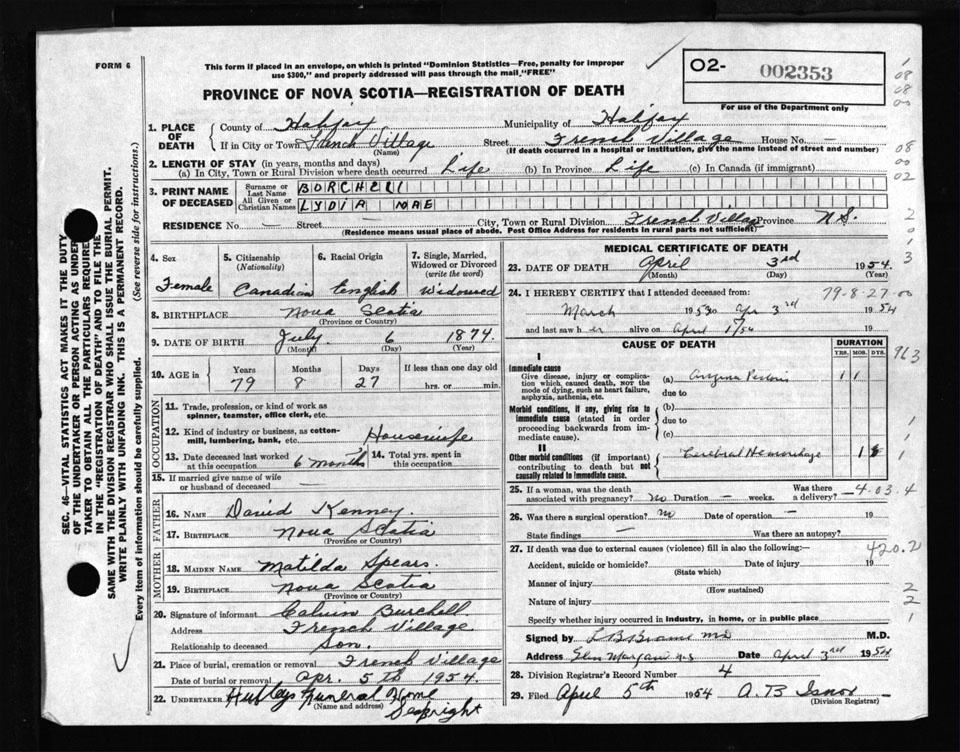 FORM 6
This form if placed in an envelope, on which is printed "Dominion Statistics—Free, penalty for improper
use $300," and properly addressed will pass through the mail, "FREE"
PROVINCE OF NOVA SCOTIA—REGISTRATION OF DEATH
O2- 002353
For use of the Department only
1. PLACE OF DEATH County of Halifax Municipality of Halifax
If in City or Town French Village (Name) Street French Village House No. —
(If death occurred in a hospital or institution, give the name instead of street and number)
2. LENGTH OF STAY (in years, months and days)
(a) In City, Town or Rural Division where death occurred Life (b) In Province Life (c) In Canada (if immigrant)
3. PRINT NAME OF DECEASED
Surname or Last Name BORCHELL
All Given or Christian Names LYDIA MAE
RESIDENCE No. — Street — City, Town or Rural Division French Village Province N.S.
(Residence means usual place of abode. Post Office Address for residents in rural parts not sufficient)
4. Sex Female
5. Citizenship (Nationality) Canadian
6. Racial Origin English
7. Single, Married, Widowed or Divorced (write the word) Widowed
8. BIRTHPLACE Nova Scotia
(Province or Country)
9. DATE OF BIRTH July 6 1874
(Month) (Day) (Year)
10. AGE in Years 79 Months 8 Days 27 If less than one day hrs. or min.
OCCUPATION
11. Trade, profession, or kind of work as spinner, teamster, office clerk, etc.
12. Kind of industry or business, as cotton-mill, lumbering, bank, etc. Housewife
13. Date deceased last worked at this occupation 6 months
14. Total yrs. spent in this occupation
15. If married give name of wife or husband of deceased —
FATHER
16. NAME David Kenney.
17. BIRTHPLACE Nova Scotia
(Province or Country)
MOTHER
18. MAIDEN NAME Matilda Spears.
19. BIRTHPLACE Nova Scotia
(Province or Country)
20. Signature of informant Calvin Burchell
Address French Village
Relationship to deceased Son.
21. Place of burial, cremation or removal French Village
Date of burial or removal Apr. 5th 1954.
22. UNDERTAKER Hubleys Funeral Home
(Name and address) Seabright
MEDICAL CERTIFICATE OF DEATH
23. DATE OF DEATH April 3rd 1954.
(Month) (Day) (Year)
24. I HEREBY CERTIFY that I attended deceased from: 79-8-27-00
March 1953 to Apr 3rd 1954
and last saw her alive on April 1/54 19
CAUSE OF DEATH
DURATION
YRS. MOS. DYS.
I
Immediate cause
Give disease, injury or complication which caused death, NOT the mode of dying, such as heart failure, asphyxia, asthenia, etc.
(a) Angina Pectoris
due to
Morbid conditions, if any, giving rise to immediate cause (stated in order proceeding backwards from immediate cause).
(b)
due to
(c)
II
Other morbid conditions (if important) contributing to death but not causally related to immediate cause.
Cerebral Hemorrhage
25. If a woman, was the death associated with pregnancy? no Duration — weeks. Was there a delivery? —
4.03.4
26. Was there a surgical operation? no Date of operation — 19
State findings — Was there an autopsy?
27. If death was due to external causes (violence) fill in also the following:— 420.2
Accident, suicide or homicide? Date of injury 19
(State which)
Manner of injury
(How sustained)
Nature of injury
Specify whether injury occurred in Industry, in home, or in public place
Signed by M.D.
Address Glen Margaret N.S Date April 3rd 1954
28. Division Registrar's Record Number 4
29. Filed April 5th 1954 A. B Isnor
(Division Registrar)
SEC. 46—VITAL STATISTICS ACT MAKES IT THE DUTY
OF THE UNDERTAKER OR PERSON ACTING AS UNDER
TAKER TO OBTAIN ALL THE PARTICULARS REQUIRED
IN THE "REGISTRATION OF DEATH" AND TO FILE THE
SAME WITH THE DIVISION REGISTRAR WHO SHALL ISSUE THE BURIAL PERMIT.
WRITE PLAINLY WITH UNFADING INK. THIS IS A PERMANENT RECORD.
Every item of information should be carefully supplied. (See reverse side for instructions.)
1
08
08
00
08
00
02
2
0
1
3
963
1
1
2
2
1